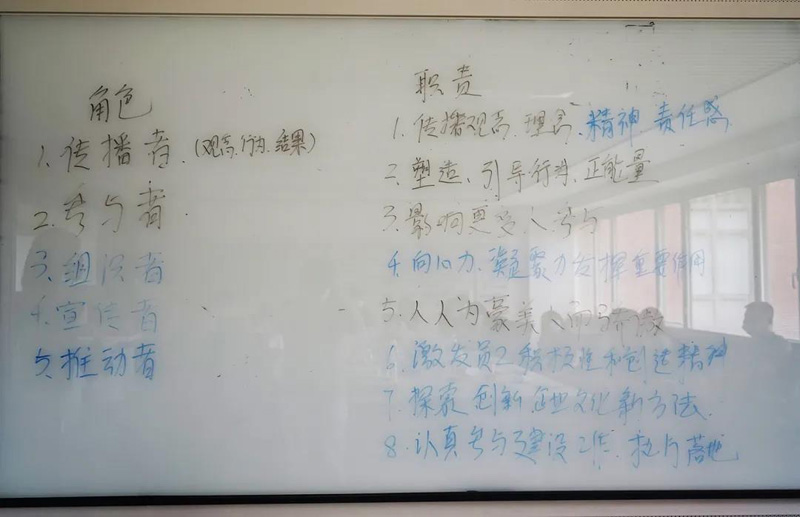 角色
1. 传播者.(观念.行为.结果)
2. 参与者
3. 组织者
4. 宣传者
5. 推动者
职责
1. 传播观念.理念.精神.责任感
2. 塑造、引导行为.正能量
3. 影响更多人参与
4. 向心力、凝聚力发挥重要作用
5. 人人为豪美人而骄傲
6. 激发员工积极性和创造精神
7. 探索创新企业文化新方法.
8. 认真参与建设工作. 落地